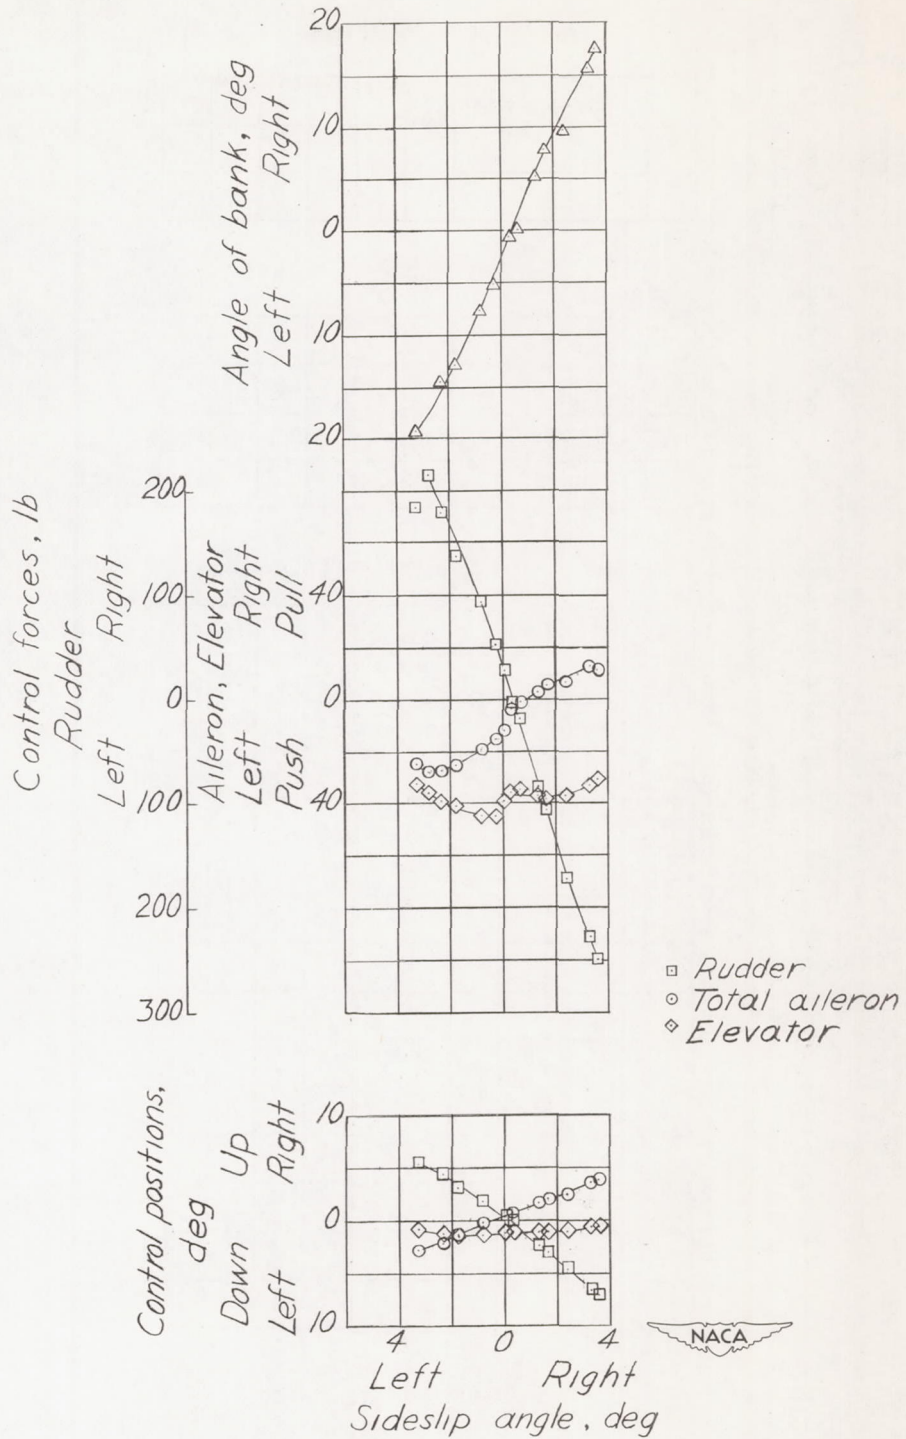 20
10
0
10
20
Angle of bank, deg
Left Right
200
100
0
100
200
300
Control forces, lb
Rudder
Left Right
Aileron, Elevator
Left Right
Push Pull
40
0
40
Rudder
Total aileron
Elevator
10
0
10
Control positions,
deg
Down Up
Left Right
4 0 4
Left Right
Sideslip angle, deg
NACA